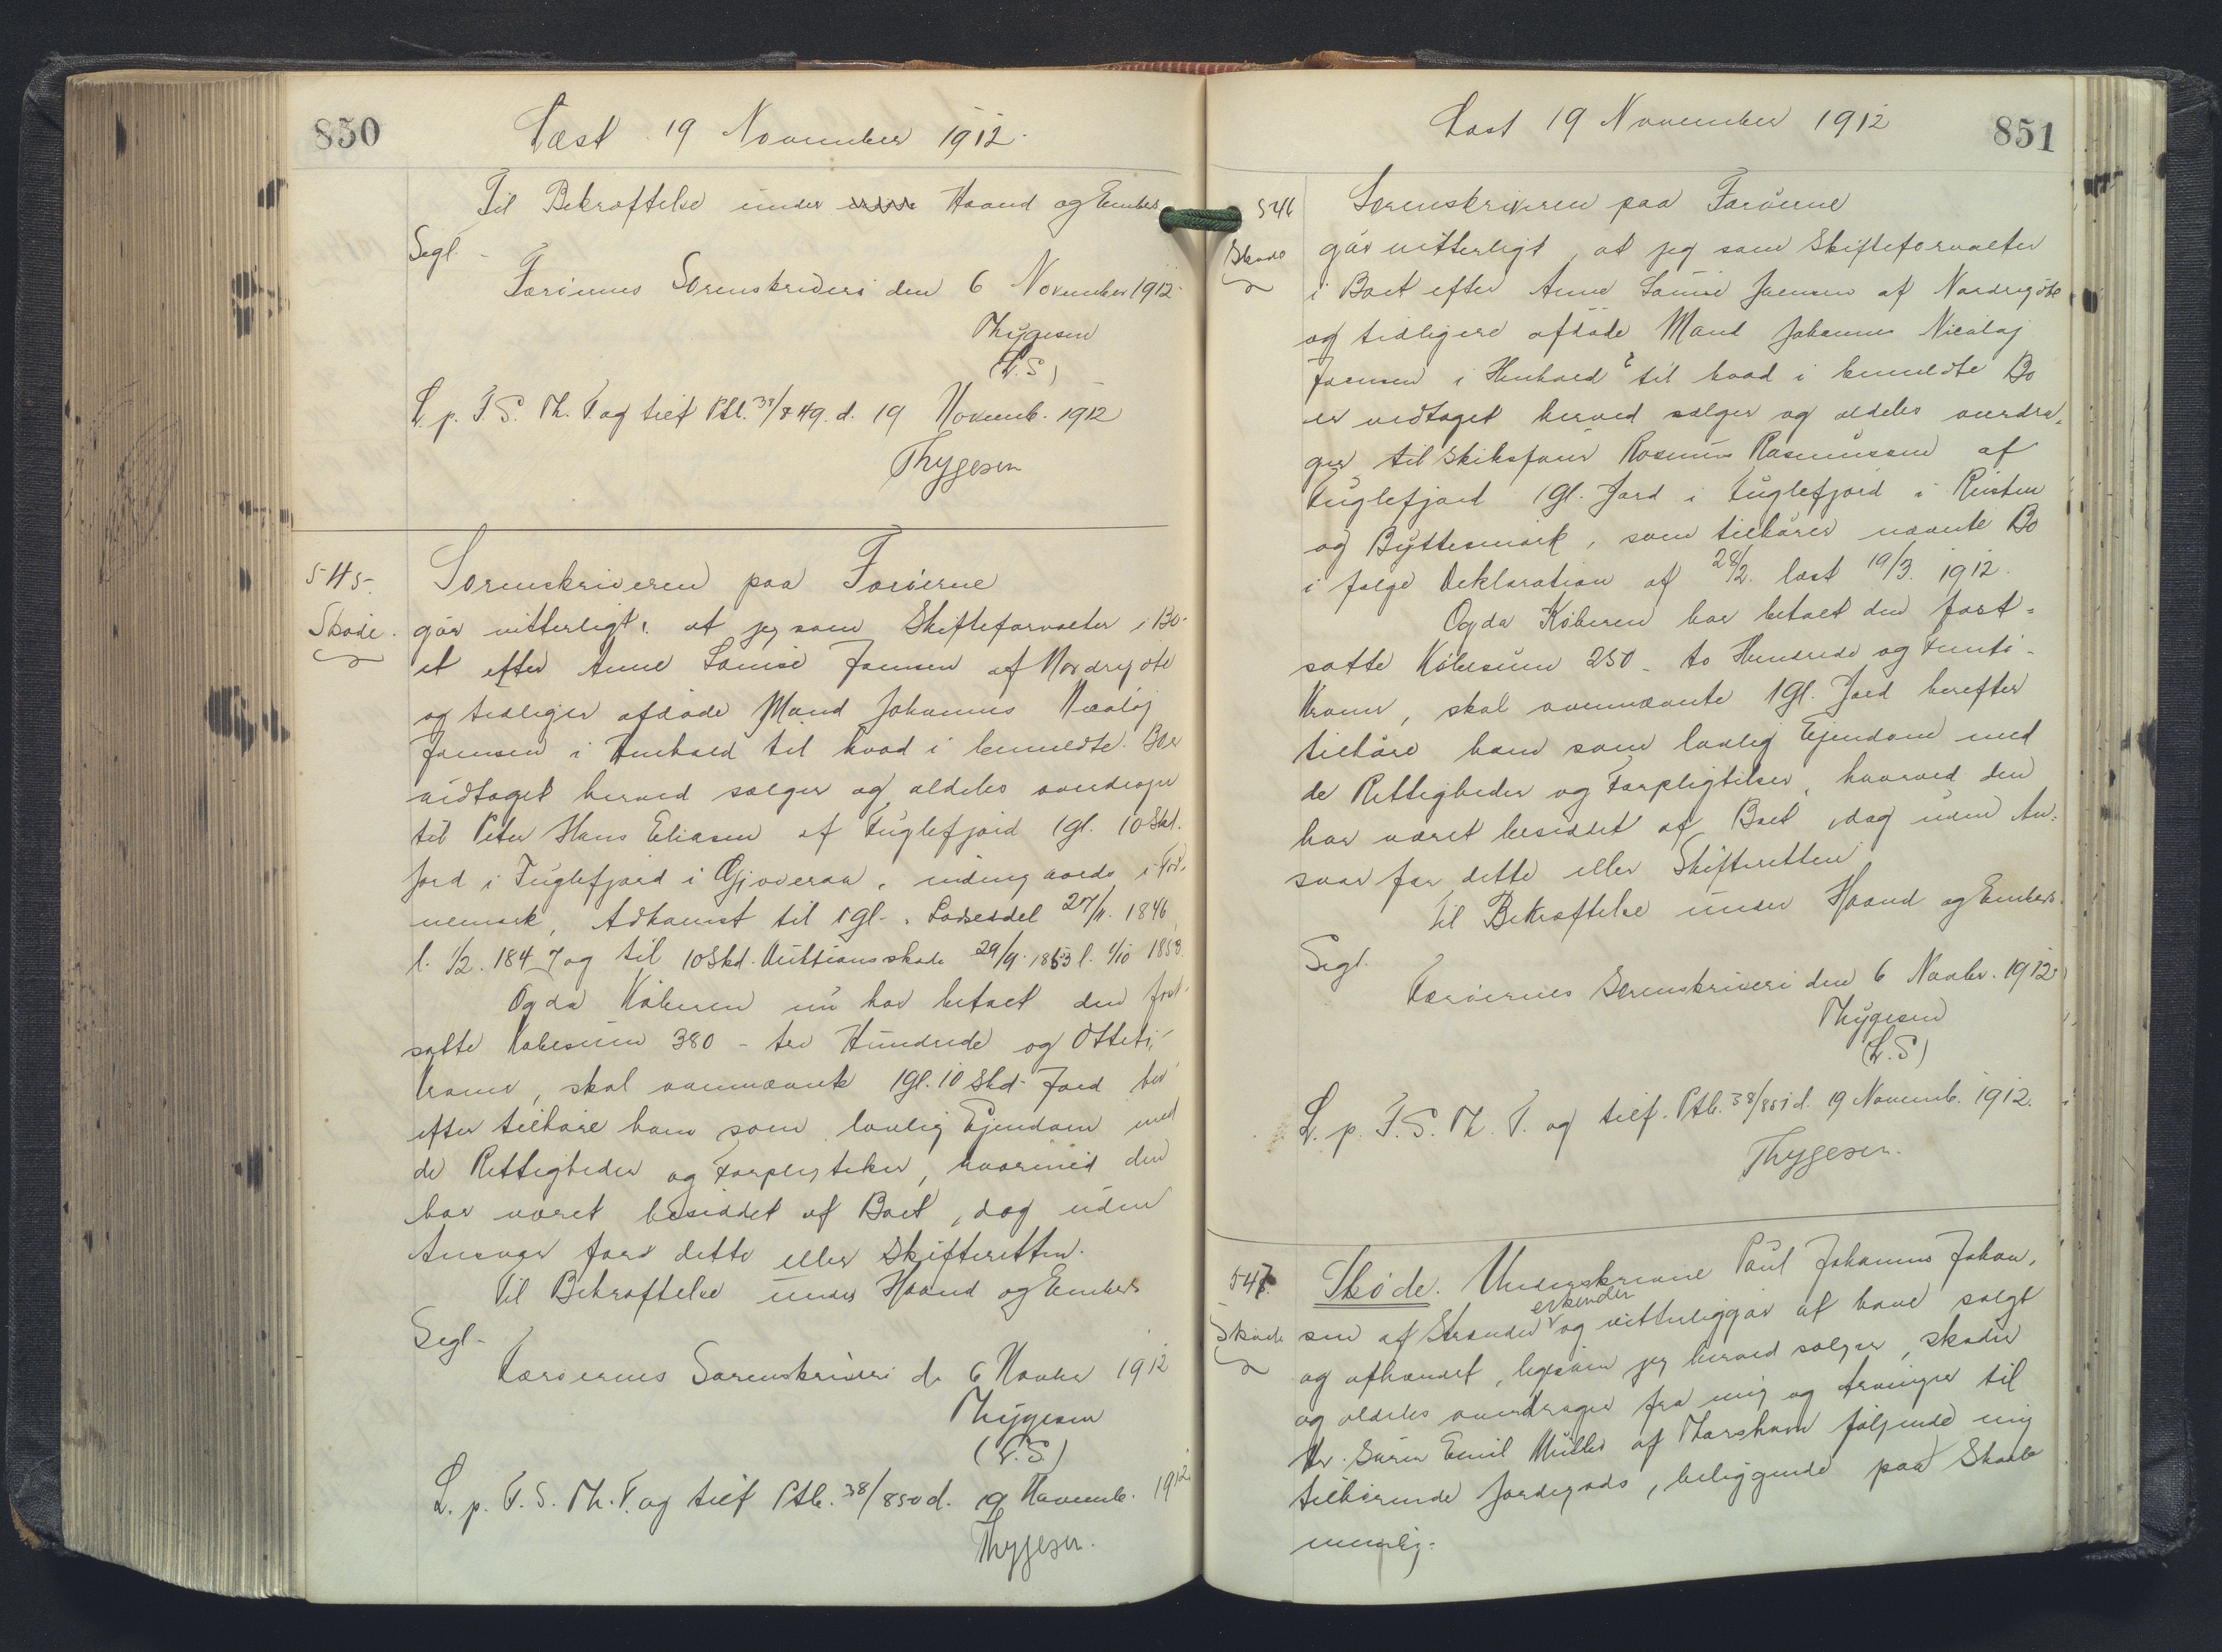 850
Læst 19 November 1912.
Til Bekræftelse under Haand og Embeds
Segl.
Færøernes Sorenskriveri den 6 November 1912
Thygesen
(L.S)
L. p. F. S. Th. T. og tilf Ptb. 38/849. d. 19 Novemb. 1912
Thygesen
545.
Skøde.
Sorenskriveren paa Færøerne
gør vitterligt, at jeg som Skifteforvalter i Bo-
et efter Anne Louise Joensen af Nordregøte
og tidliger afdøde Mand Johannes Nicolaj
Joensen i Henhold til hvad i bemeldte Bo er
vedtaget herved sælger og aldeles overdrager
til Peter Hans Eliasen af Fuglefjord 1 gl. 10 Skd.
Jord i Fuglefjord i Gjoveraa, i For-
nemark, Adkomst til 1 gl. 27/11. 1846,
l. 1/2. 1847 og til 10 Skd. Auktionsskøde 29/9. 1853 l. 1/10 1853.
Og da Køberen nu har betalt den fast-
satte Købesum 380 - tre Hundrede og Otteti-
Kroner, skal ovennævnte 1 gl. 10 Skd. Jord her-
efter tilhøre ham som lovlig Ejendom med
de Rettigheder og Forpligtelser, hvormed den
har været besiddet af Boet, dog uden
Ansvar for dette eller Skifteretten.
Til Bekræftelse under Haand og Embeds
Segl-
Færøernes Sorenskriveri d. 6 Novbr 1912
Thygesen
(L.S.)
L. p. F. S. Th. T. og tilf Ptb. 38/850 d. 19 Novemb. 1912
Thygesen.
Læst 19 November 1912
851
546
Skøde
Sorenskriveren paa Færøerne
gør vitterligt, at jeg som Skifteforvalter
i Boet efter Anne Louise Joensen af Nordregøte
og tidligere afdøde Mand Johannes Nicolaj
Joensen i Henhold til hvad i bemeldte Bo
er vedtaget herved sælger og aldeles overdra-
ger til Rasmus Rasmussen af
Fuglefjord 1 gl. Jord i Fuglefjord i Risten
og Byttesmørk, som tilhører nævnte Bo
i følge Deklaration af 28/2. læst 19/3. 1912.
Og da Køberen har betalt den fast-
satte Købesum 250 - to Hundrede og Femti-
Kroner, skal ovennævnte 1 gl. Jord herefter
tilhøre ham som lovlig Ejendom med
de Rettigheder og Forpligtelser, hvorved den
har været besiddet af Boet, dog uden An-
svar for dette eller Skifteretten
Til Bekræftelse under Haand og Embeds.
Segl.
Færøernes Sorenskriveri den 6 Novbr. 1912
Thygesen
(L.S)
L. p. F. S. Th. T. og tilf. Ptb. 38/851 d. 19 Novemb. 1912.
Thygesen.
547.
Skøde
Skøde. Underskrevne Poul Johannes Johan-
sen af Strender erkender og vitterliggør at have solgt
og afhændet, ligesom jeg herved sælger, skøder
og aldeles overdrager fra mig og Arvinger til
Hr. Søren Emil Müller af Thorshavn følgende mig
tilhørende Jordegods, beliggende paa Skaale
nemlig: